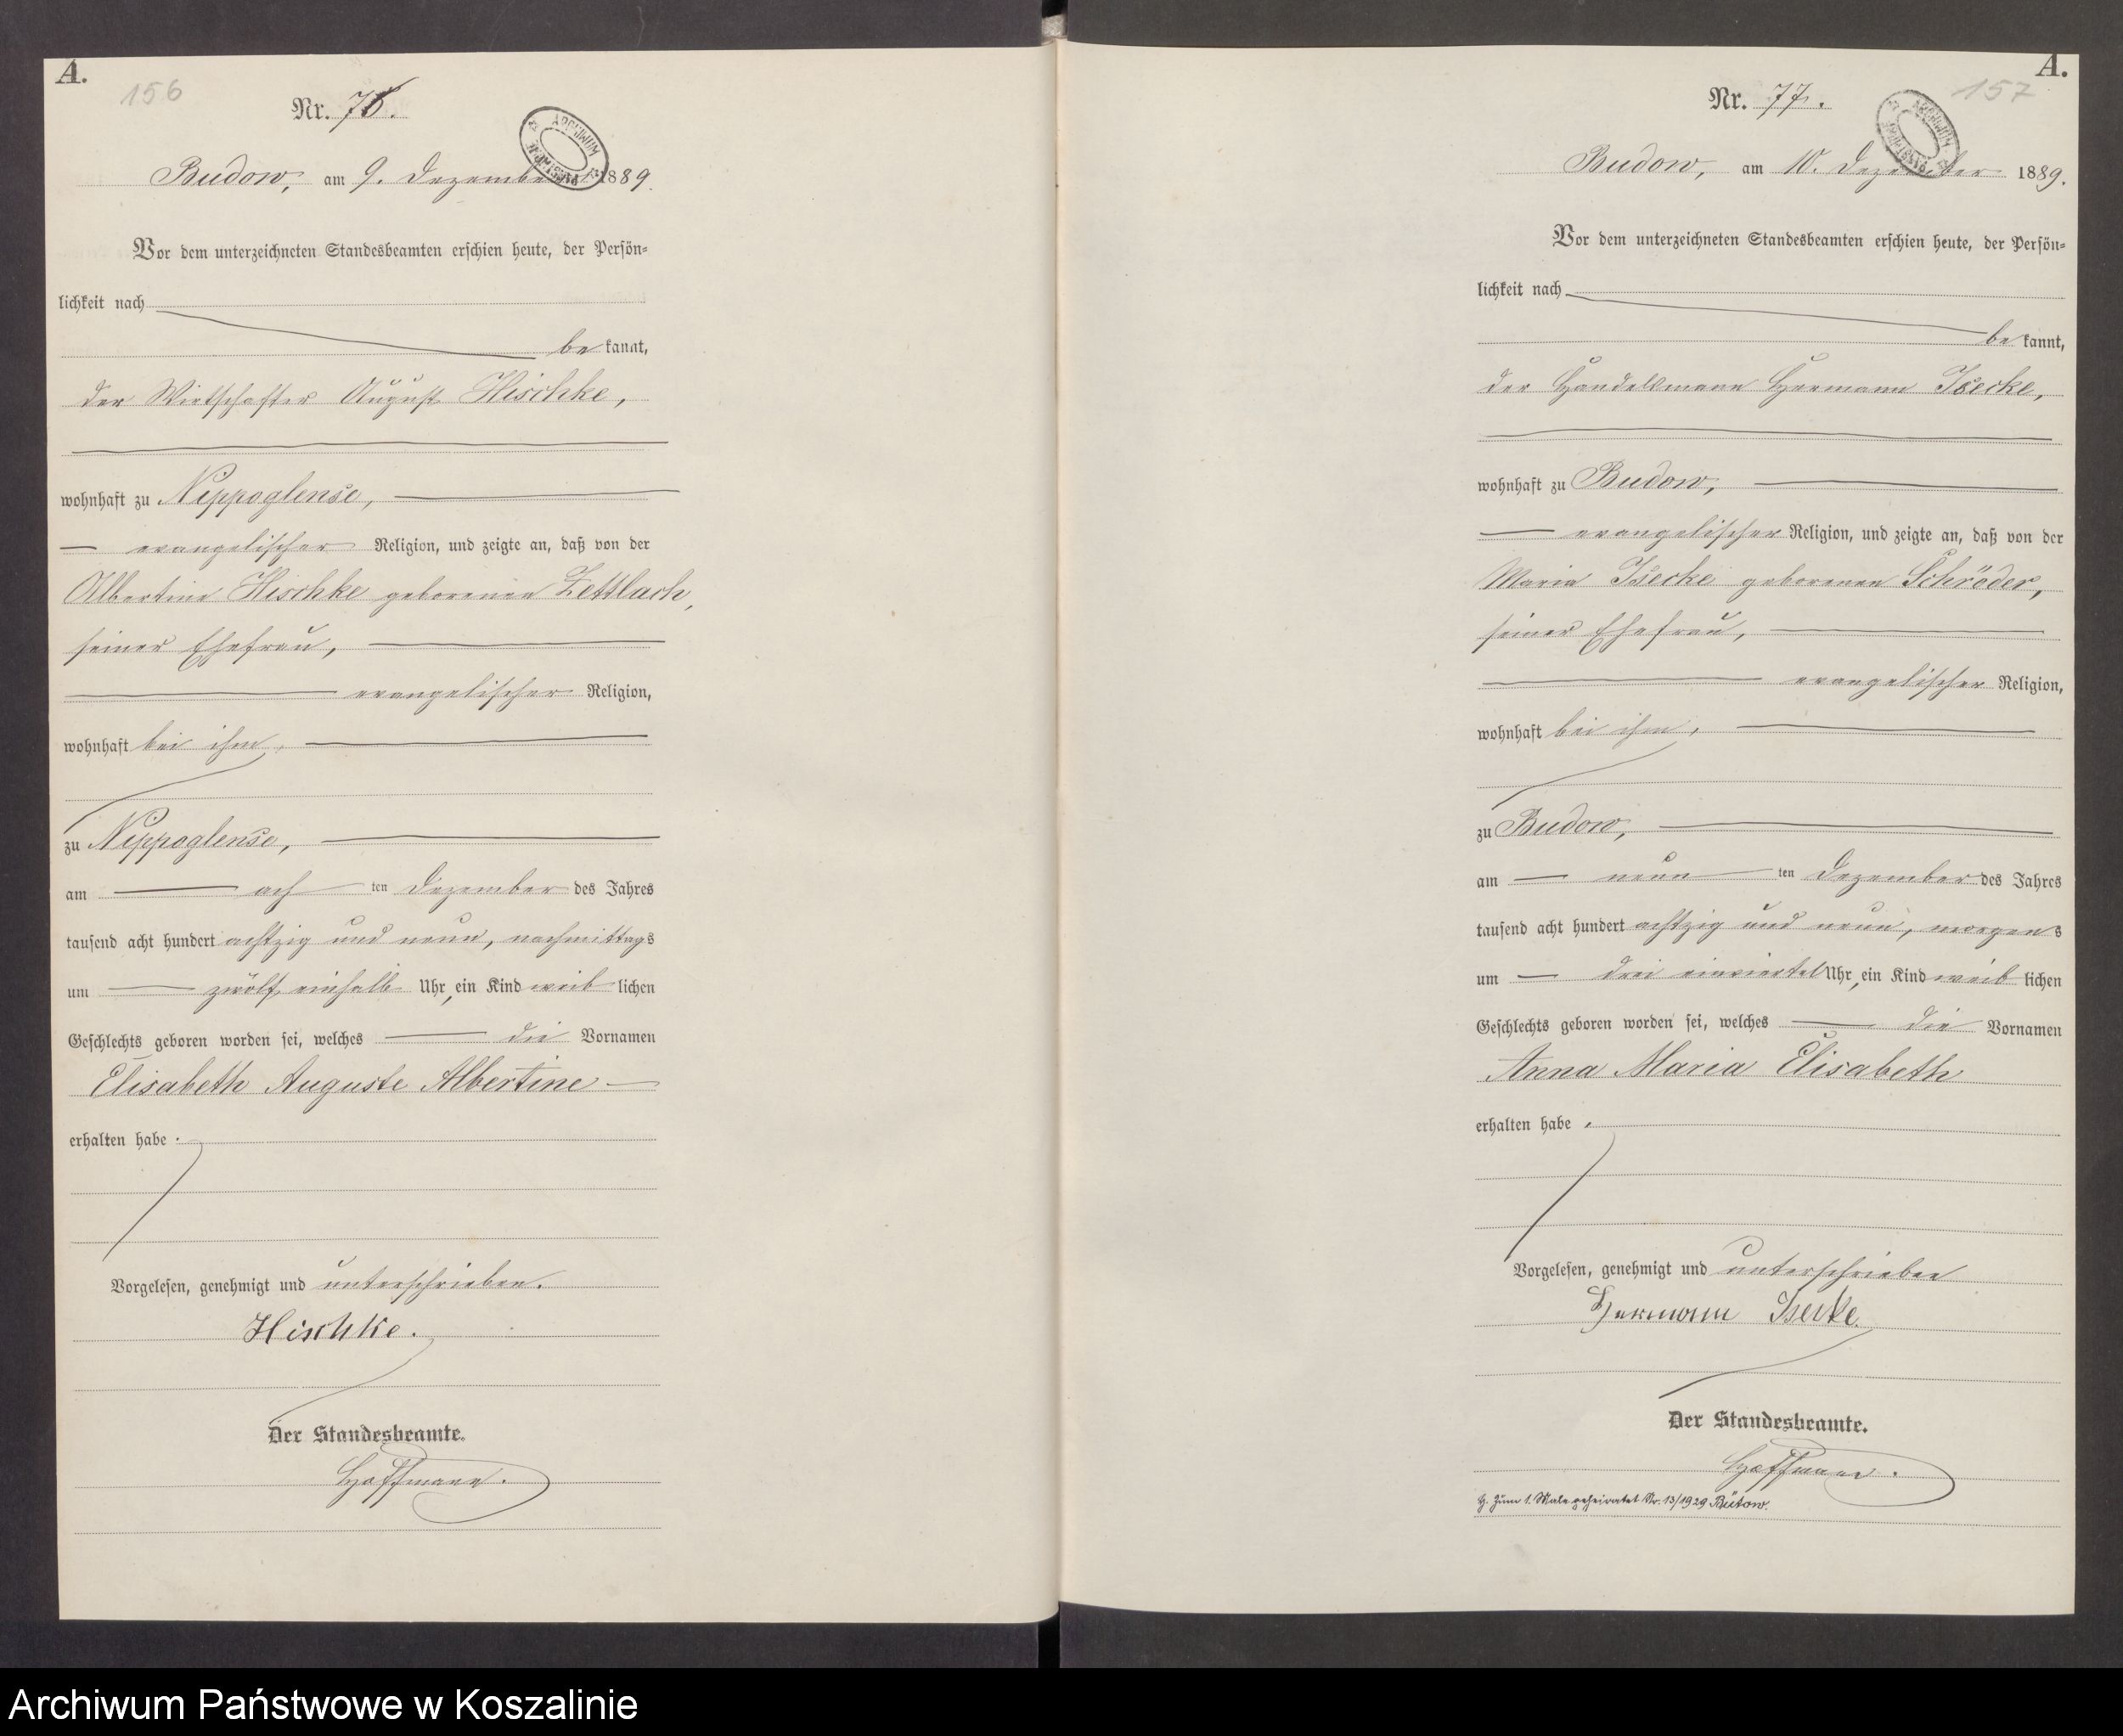 A.
156
Nr. 76.
Budow, am 9. Dezember 1889.
Vor dem unterzeichneten Standesbeamten erschien heute, der Persön-
lichkeit nach
be kannt,
der Wirtschafter August Hischke,
wohnhaft zu Nippoglense,
evangelischer Religion, und zeigte an, daß von der
Albertine Hischke geborenen Zettlach,
seiner Ehefrau,
evangelischer Religion,
wohnhaft bei ihm,
zu Nippoglense,
am ach ten Dezember des Jahres
tausend acht hundert achtzig und neun, nachmittags
um zwölf einhalb Uhr, ein Kind weib lichen
Geschlechts geboren worden sei, welches die Vornamen
Elisabeth Auguste Albertine
erhalten habe.
Vorgelesen, genehmigt und unterschrieben.
Hischke.
Der Standesbeamte.
Hoffmann.
A.
157
Nr. 77.
ARCHIWUM
Budow, am 10. Dezember 1889.
Vor dem unterzeichneten Standesbeamten erschien heute, der Persön-
lichkeit nach
be kannt,
der Handelsmann Hermann Isecke,
wohnhaft zu Budow,
evangelischer Religion, und zeigte an, daß von der
Maria Isecke geborenen Schröder,
seiner Ehefrau,
evangelischer Religion,
wohnhaft bei ihm,
zu Budow,
am neun ten Dezember des Jahres
tausend acht hundert achtzig und neun, morgens
um drei einviertel Uhr, ein Kind weib lichen
Geschlechts geboren worden sei, welches die Vornamen
Anna Maria Elisabeth
erhalten habe.
Vorgelesen, genehmigt und unterschrieben
Hermann Isecke.
Der Standesbeamte.
Hoffmann.
H. Zum 1. Male geheiratet Nr. 13/1929 Bütow.
Archiwum Państwowe w Koszalinie